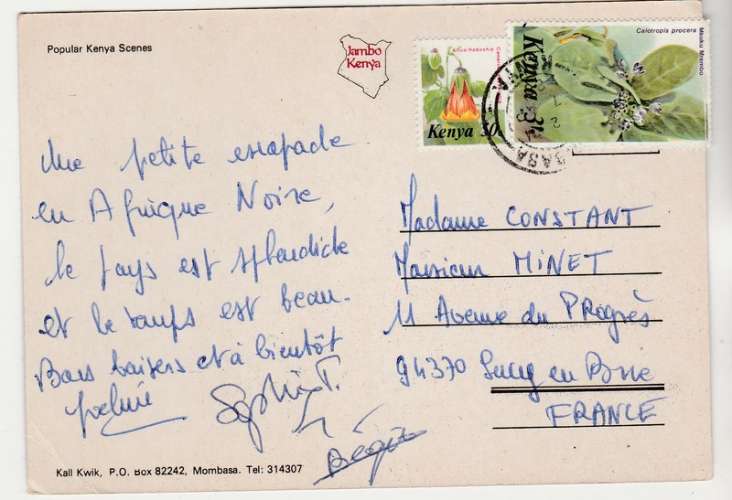 Popular Kenya Scenes
Jambo
Kenya
Kenya 30c
Calotropis procera
Kenya 3/-
Une petite escapade
en Afrique Noire,
le pays est splendide
et le temps est beau.
Bons baisers et à bientôt
Sophie T.
Régis
Madame CONSTANT
Monsieur MINET
11 Avenue du PROGRès
94370 Sucy en Brie
FRANCE
Kall Kwik, P.O. Box 82242, Mombasa. Tel: 314307